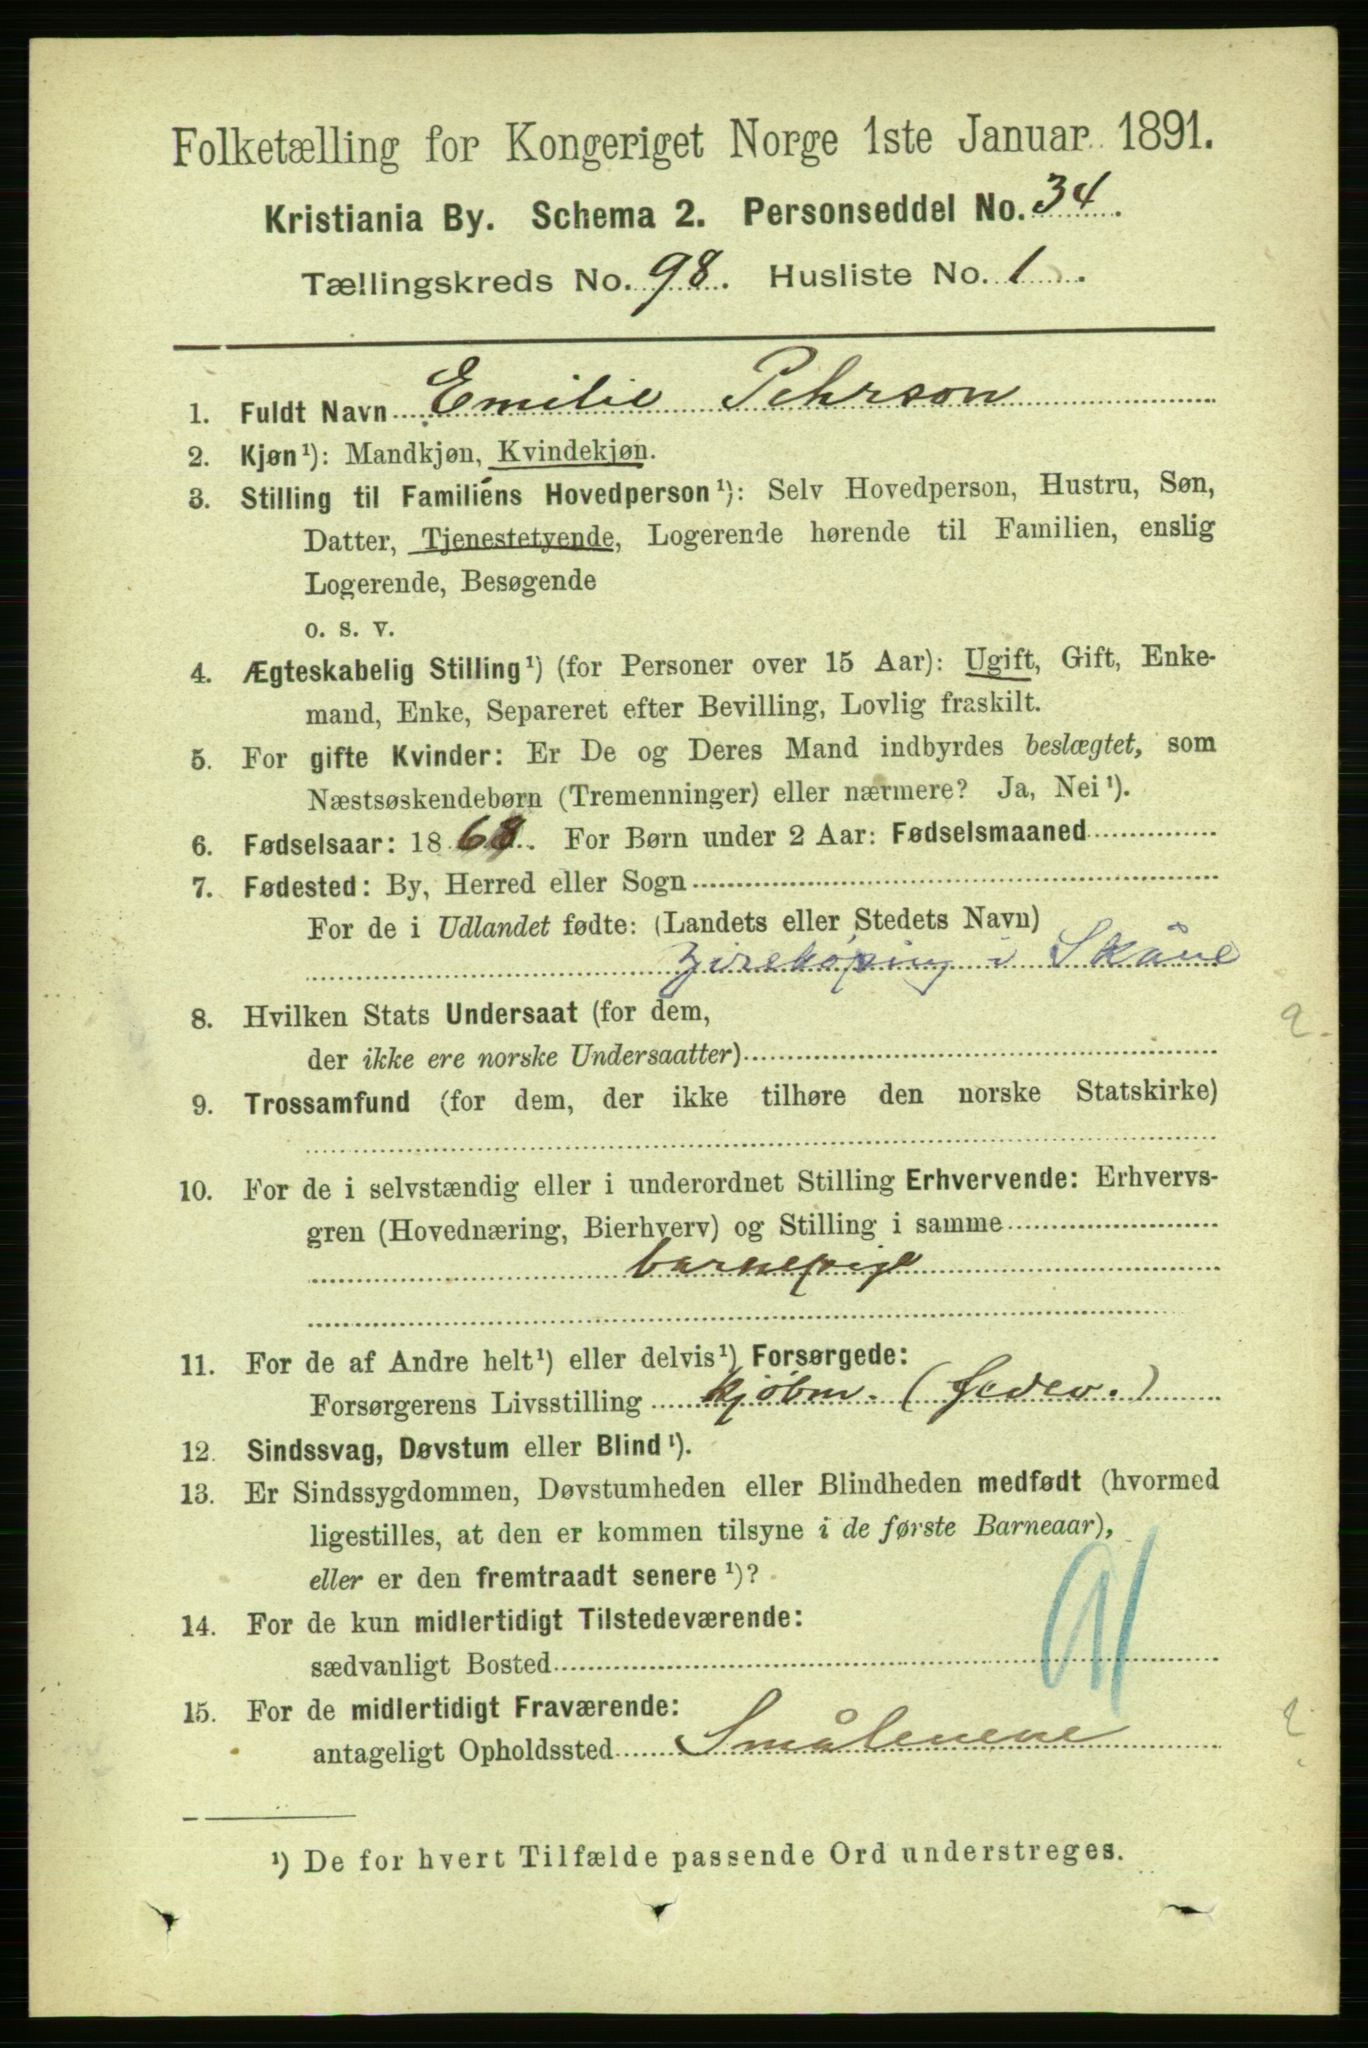 Folketælling for Kongeriget Norge 1ste Januar 1891.
Kristiania By. Schema 2. Personseddel No. 34.
Tællingskreds No. 98. Husliste No. 1.
1. Fuldt Navn Emilie Pehrson
2. Kjøn¹): Mandkjøn, Kvindekjøn.
3. Stilling til Familiens Hovedperson¹): Selv Hovedperson, Hustru, Søn,
Datter, Tjenestetyende, Logerende hørende til Familien, enslig
Logerende, Besøgende
o. s. v.
4. Ægteskabelig Stilling¹) (for Personer over 15 Aar): Ugift, Gift, Enke-
mand, Enke, Separeret efter Bevilling, Lovlig fraskilt.
5. For gifte Kvinder: Er De og Deres Mand indbyrdes beslægtet, som
Næstsøskendebørn (Tremenninger) eller nærmere? Ja, Nei¹).
6. Fødselsaar: 18 For Børn under 2 Aar: Fødselsmaaned
7. Fødested: By, Herred eller Sogn
For de i Udlandet fødte: (Landets eller Stedets Navn)
i Skåne
8. Hvilken Stats Undersaat (for dem,
der ikke ere norske Undersaatter)
9. Trossamfund (for dem, der ikke tilhøre den norske Statskirke)
10. For de i selvstændig eller i underordnet Stilling Erhvervende: Erhvervs-
gren (Hovednæring, Bierhverv) og Stilling i samme
barnepige
11. For de af Andre helt¹) eller delvis¹) Forsørgede:
Forsørgerens Livsstilling kjøbm. (
12. Sindssvag, Døvstum eller Blind¹).
13. Er Sindssygdommen, Døvstumheden eller Blindheden medfødt (hvormed
ligestilles, at den er kommen tilsyne i de første Barneaar),
eller er den fremtraadt senere¹)?
14. For de kun midlertidigt Tilstedeværende:
sædvanligt Bosted
91
15. For de midlertidigt Fraværende:
antageligt Opholdssted Smålenene
¹) De for hvert Tilfælde passende Ord understreges.